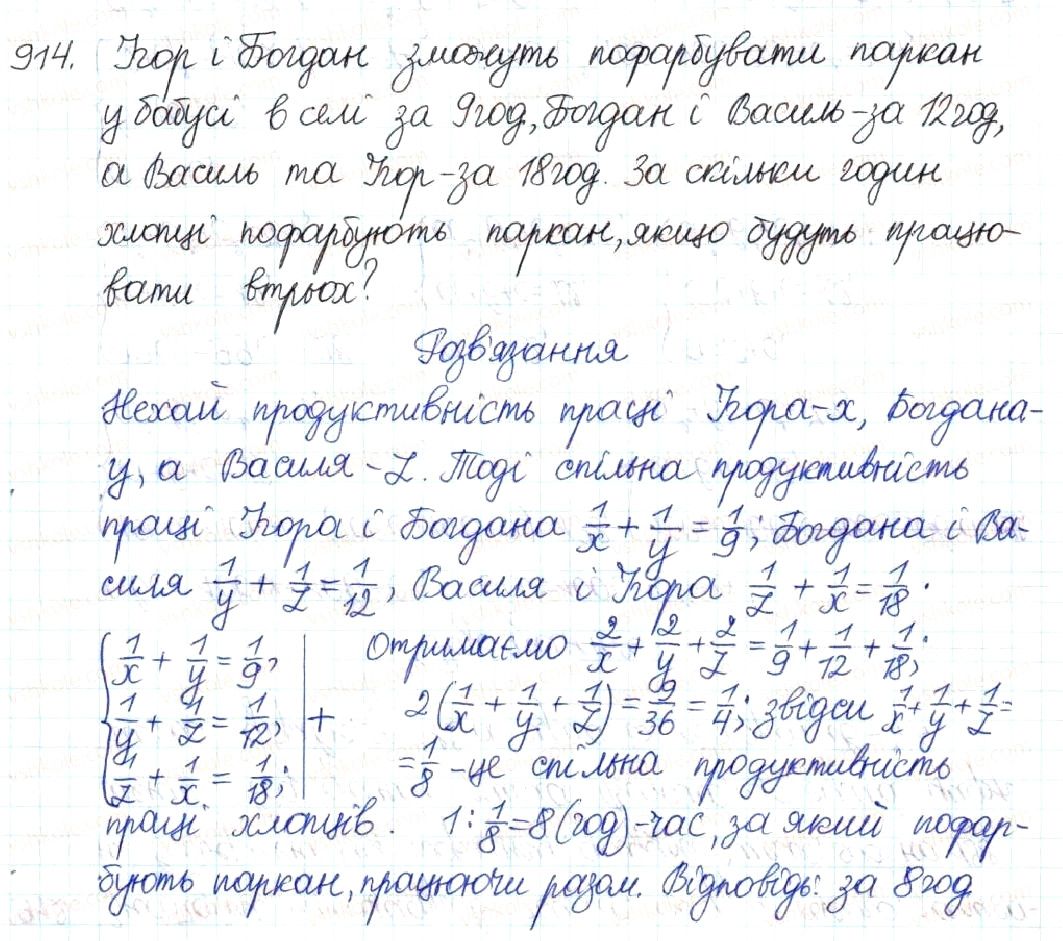 914. Ігор і Богдан зможуть пофарбувати паркан
у бабусі в селі за 9год, Богдан і Василь-за 12год,
а Василь та Ігор-за 18год. За скільки годин
хлопці пофарбують паркан, якщо будуть працю-
вати втрьох?
Розв'язання
Нехай продуктивність праці Ігора-x, Богдана-
y, а Василя-z. Тоді спільна продуктивність
праці Ігора і Богдана 1/x + 1/y = 1/9; Богдана і Ва-
силя 1/y + 1/z = 1/12, Василя і Ігора 1/z + 1/x = 1/18.
{ 1/x + 1/y = 1/9, | Отримаємо 2/x + 2/y + 2/z = 1/9 + 1/12 + 1/18;
1/y + 1/z = 1/12, | + 2(1/x + 1/y + 1/z) = 9/36 = 1/4; звідси 1/x + 1/y + 1/z =
1/z + 1/x = 1/18; | = 1/8 - це спільна продуктивність
праці хлопців. 1 : 1/8 = 8 (год)-час, за який пофар-
бують паркан, працюючи разом. Відповідь: за 8год